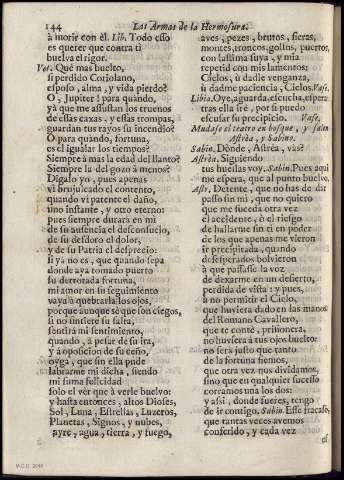 144 Las Armas de la Hermosura.
à morir con èl. Lib. Todo esso
es querer que contra ti
buelva el rigor.
Vet. Què mas buelto,
si perdido Coriolano,
esposo, alma, y vida pierdo?
O, Jupiter! para quando,
yà que me assistan los truenos
de essas caxas, y essas trompas,
guardan tus rayos su incendio?
O para quando, fortuna,
es el igualar los tiempos?
Siempre à mas la edad del llanto?
Siempre la del gozo à menos?
Digalo yo, pues apenas
vi brujuleado el contento,
quando vi patente el daño,
uno instante, y otro eterno:
pues siempre durarà en mi
de su ausencia el desconsuelo,
de su desdoro el dolor,
y de su Patria el desprecio:
si ya no es, que quando sepa
donde aya tomado puerto
su derrotada fortuna,
mi amor en su seguimiento
vaya à quebrarla los ojos,
porque aunque sè que son ciegos,
si no sintiere su falta,
sentirà mi sentimiento,
quando, à pesar de su ira,
y à oposicion de su ceño,
oyga, que sin ella pude
labrarme mi dicha, siendo
mi suma felicidad
solo el vèr que à verle buelvo:
y hasta entonces, altos Dioses,
Sol, Luna, Estrellas, Luzeros,
Planetas, Signos, y nubes,
ayre, agua, tierra, y fuego,
aves, pezes, brutos, fieras,
montes, troncos, golfos, puertos,
con lastima suya, y mia
repetid con mis lamentos:
Cielos, ù dadle venganza,
ù dadme paciencia, Cielos. Vase.
Libia. Oye, aguarda, escucha, espera:
tras ella irè, por si puedo
escusar su precipicio. Vase.
Mudase el teatro en bosque, y salen
Astrèa, y Sabino.
Sabin. Dònde, Astrèa, vàs?
Astrèa. Siguiendo
tus huellas voy. Sabin. Pues aqui
me espera, que al punto buelvo.
Astr. Detente, que no has de dar
passo sin mi, que no quiero
que me suceda otra vez
el accidente, ò el riesgo
de hallarme sin ti en poder
de los que apenas me vieron
ir precipitada, quando
desesperados bolvieron
à que passasse la voz
de dexarme en un desierto,
perdida de vista: y pues,
à no permitir el Cielo,
que huviera dado en las manos
del Romano Cavallero,
que te contè, prisionera,
no huviera à tus ojos buelto:
no serà justo que tanto
de la fortuna fiemos,
que otra vez nos dividamos,
sino que en qualquier sucesso
corramos una los dos:
y assi, donde fueres, tengo
de ir contigo. Sabin. Esse fracaso,
que tantas veces avemos
conferido, y cada vez